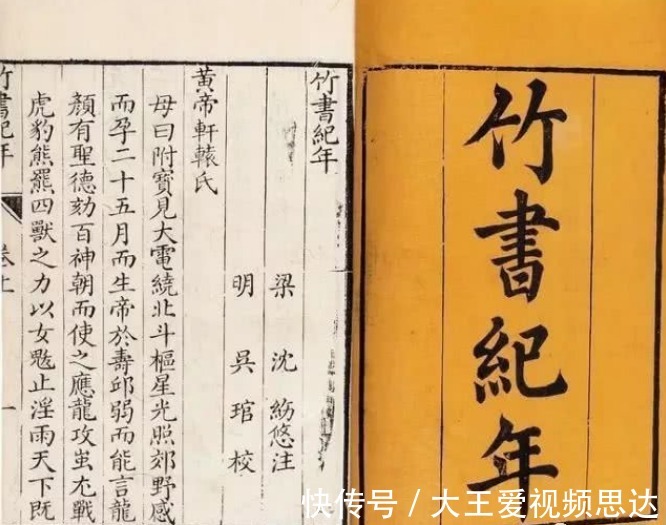 竹書紀年
竹書紀年
梁 沈 注
明 吳 琯 校
黃帝軒轅氏
母曰附寶見大電繞北斗樞星光照郊野感
而孕二十五月而生帝於壽邱弱而能言龍
顏有聖德劾百神朝而使之應龍攻蚩尤戰
虎豹熊羆四獸之力以女魃止淫雨天下既
竹書紀年 卷上 一
快传号 / 大王爱视频思达